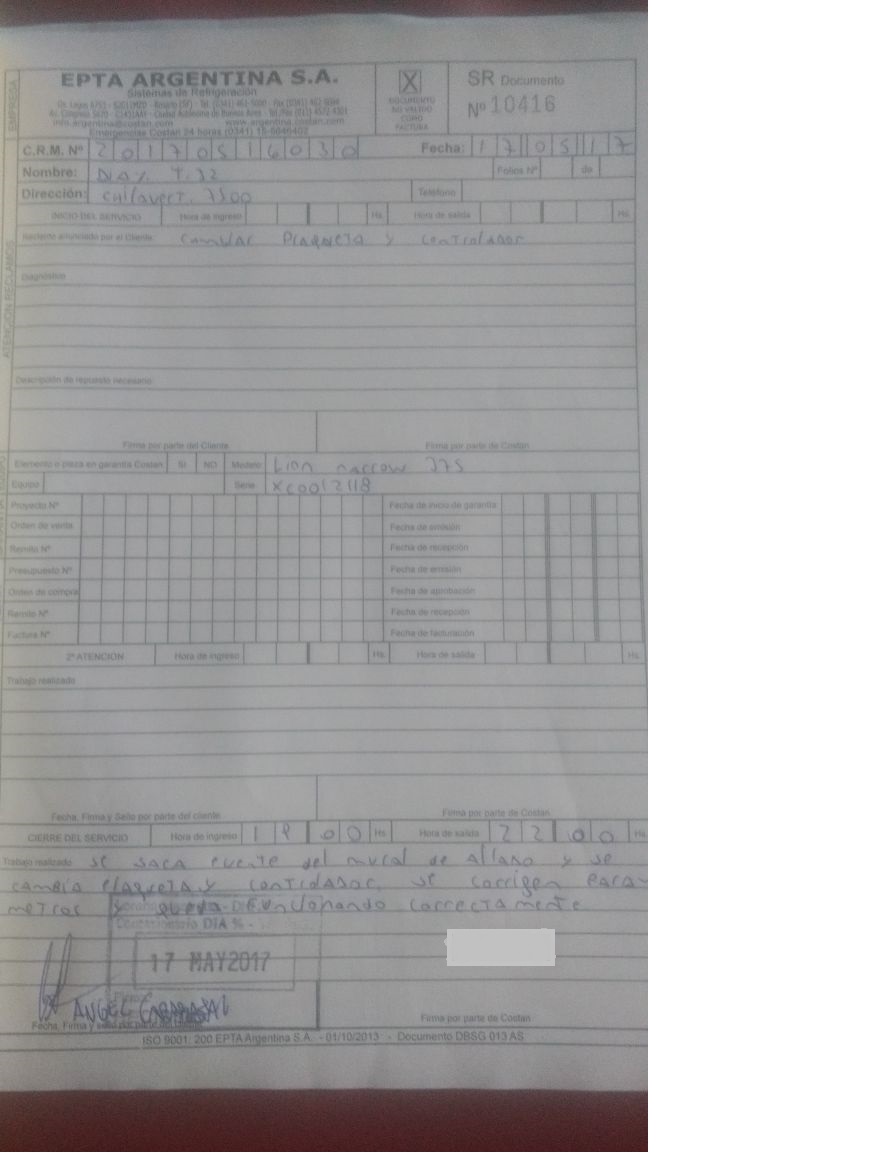 EMPRESA
EPTA ARGENTINA S.A.
Sistemas de Refrigeración
info.argentina@costan.com www.argentina.costan.com
Emergencias Costan 24 horas (0341) 15-5046402
X
DOCUMENTO NO VALIDO COMO FACTURA
SR Documento
Nº 10416
C.R.M. Nº 20170516030 Fecha: 17 05 17
Nombre: Folios Nº de
Dirección: 7500 Teléfono
INICIO DEL SERVICIO Hora de ingreso Hs Hora de salida Hs.
ATENCION RECLAMOS
Reclamo anunciado por el Cliente: Cambiar Plaqueta y controlador
Diagnóstico
Descripción de repuesto necesario:
Firma por parte del Cliente Firma por parte de Costan
Elemento o pieza en garantía Costan SI NO Modelo Lion narrow 375
Equipo Serie XC0012118
Proyecto Nº Fecha de inicio de garantía
Orden de venta Fecha de emisión
Remito Nº Fecha de recepción
Presupuesto Nº Fecha de emisión
Orden de compra Fecha de aprobación
Remito Nº Fecha de recepción
Factura Nº Fecha de facturación
2ª ATENCION Hora de ingreso Hs. Hora de salida Hs.
Trabajo realizado
Fecha, Firma y Sello por parte del cliente Firma por parte de Costan
CIERRE DEL SERVICIO Hora de ingreso 19 00 Hs Hora de salida 22 00 Hs
Trabajo realizado se saca puente del mural de al lado y se
cambia plaqueta y controlador, se corrigen para
metros y queda funcionando correctamente
DIA %
17 MAY 2017
ANGEL
Fecha, Firma y sello por parte del cliente Firma por parte de Costan
ISO 9001: 200 EPTA Argentina S.A. - 01/10/2013 - Documento DBSG 013 AS